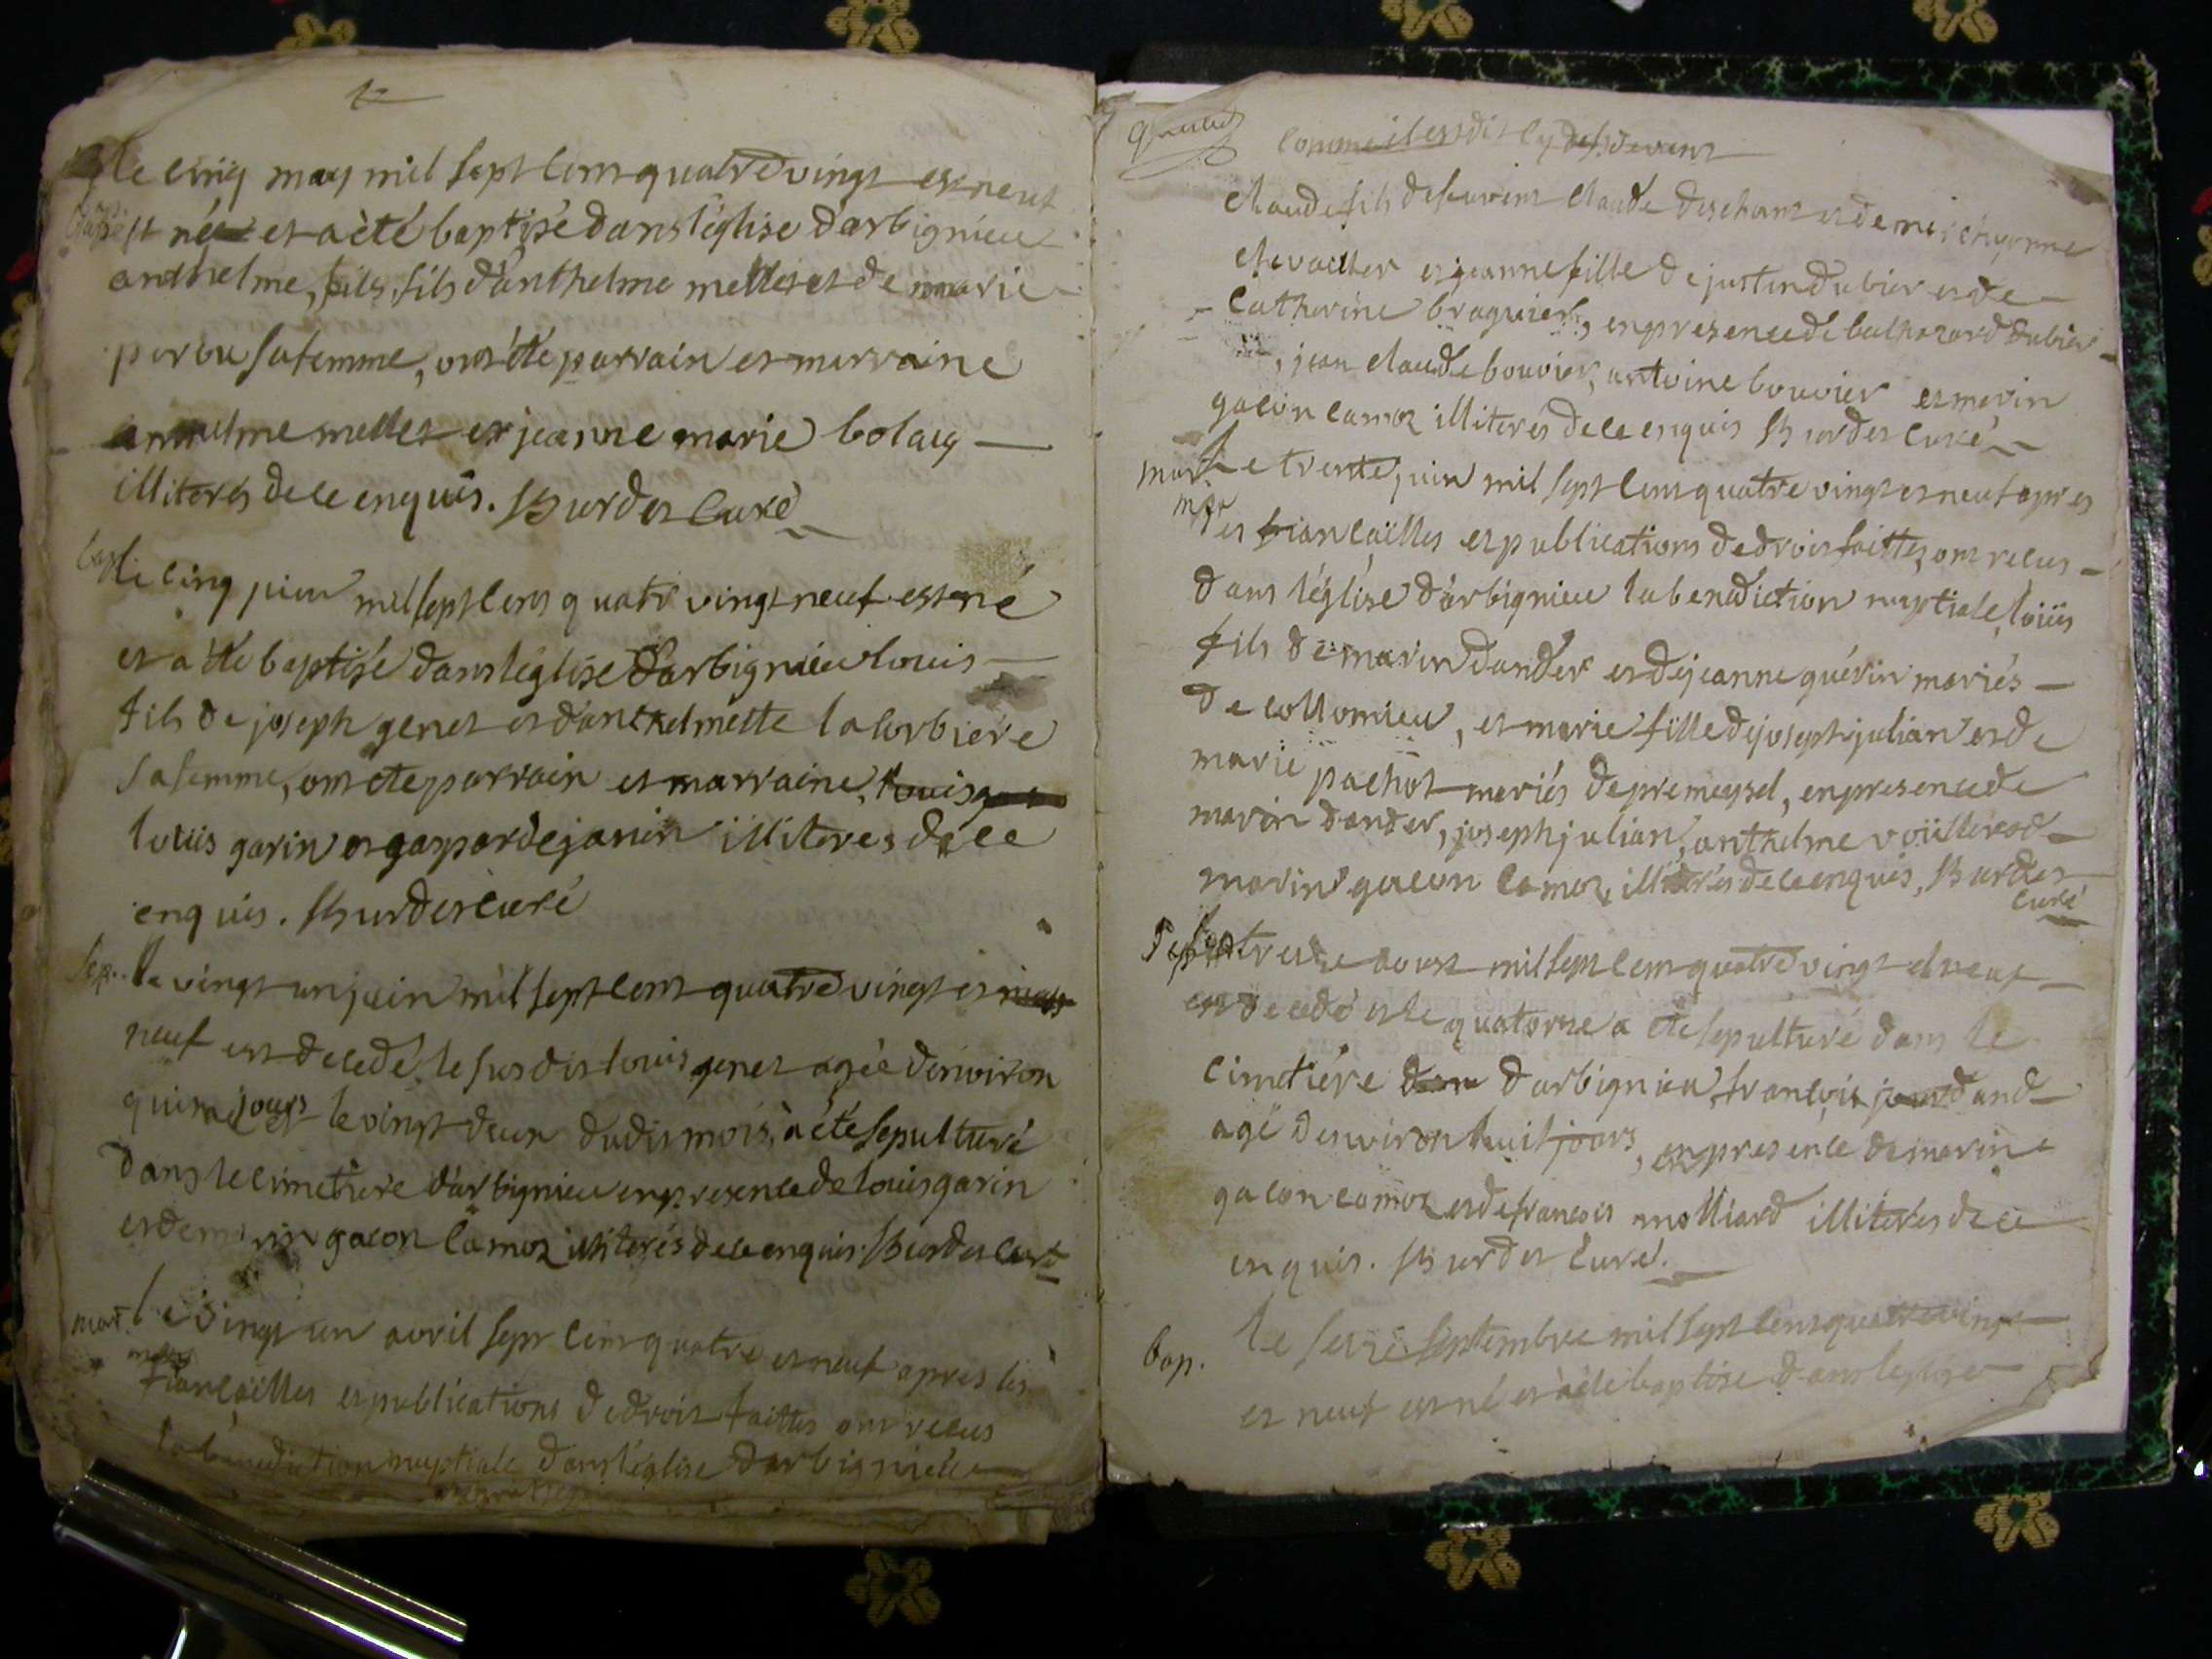 le cinq may mil sept cent quatre vingt et neuf
est né et a èté baptisé dans l'église d'arbignieu
anthelme, fils d'anthelme mellet et de marie
sa femme, ont été parrain et marraine
anthelme mellet et jeanne marie
illiterés de ce enquis. Burdet curé
bap. le cinq juin mil sept cent quatre vingt neuf est né
et a été baptisé dans l'église d'arbignieu louis
fils de joseph genet et d'anthelmette lacorbiere
sa femme, ont ete parrain et marraine, louis
louis garin et gasparde janin illiteres de ce
enquis. Burdet curé
sep. le vingt un juin mil sept cent quatre vingt et
neuf est decedé, le susdit louis genet agée d'environ
quinze jours le vingt deux dudit mois, a été sepulturé
dans le cimetiere d'arbignieu en presence de louis garin
et de marin gacon camoz illiterés de ce enquis. Burdet curé
mar. le vingt un avril sept cent quatre et neuf apres les
fiancailles et publications de droit faittes ont recus
la benediction nuptiale dans l'église d'arbignieu
comme il est dit cy devant
claude fils de claude deschamt et de
chevallier et jeanne fille de justin dubier et de
catherine braguier, en presence de balthazard dubier
, jean claude bouvier, antoine bouvier et marin
gacon camoz illiterés de ce enquis Burdet curé
mar. le trente juin mil sept cent quatre vingt et neuf apres
les fiancailles et publications de droit faittes, ont recus
dans l'église d'arbignieu la benediction nuptiale, loüis
fils de marin dander et de jeanne guérin mariés
de collomieu, et marie fille de joseph julian et de
marie pachot mariés de premeysel, en presence de
marin dander, joseph julian, anthelme
marin gacon camoz, illiterés de ce enquis, Burdet
curé
Sep. le treize aoust mil sept cent quatre vingt et neuf
est decedé et le quatorze a ete sepulturé dans le
cimetiére d'arbignieu, francois dand
agé d'environ huit jours, en presence de marin
gacon camoz et de francois molliard illiterés de ce
enquis. Burdet curé.
bap. le seize septembre mil sept cent quatre vingt
et neuf est né et a été baptisé dans l'eglise